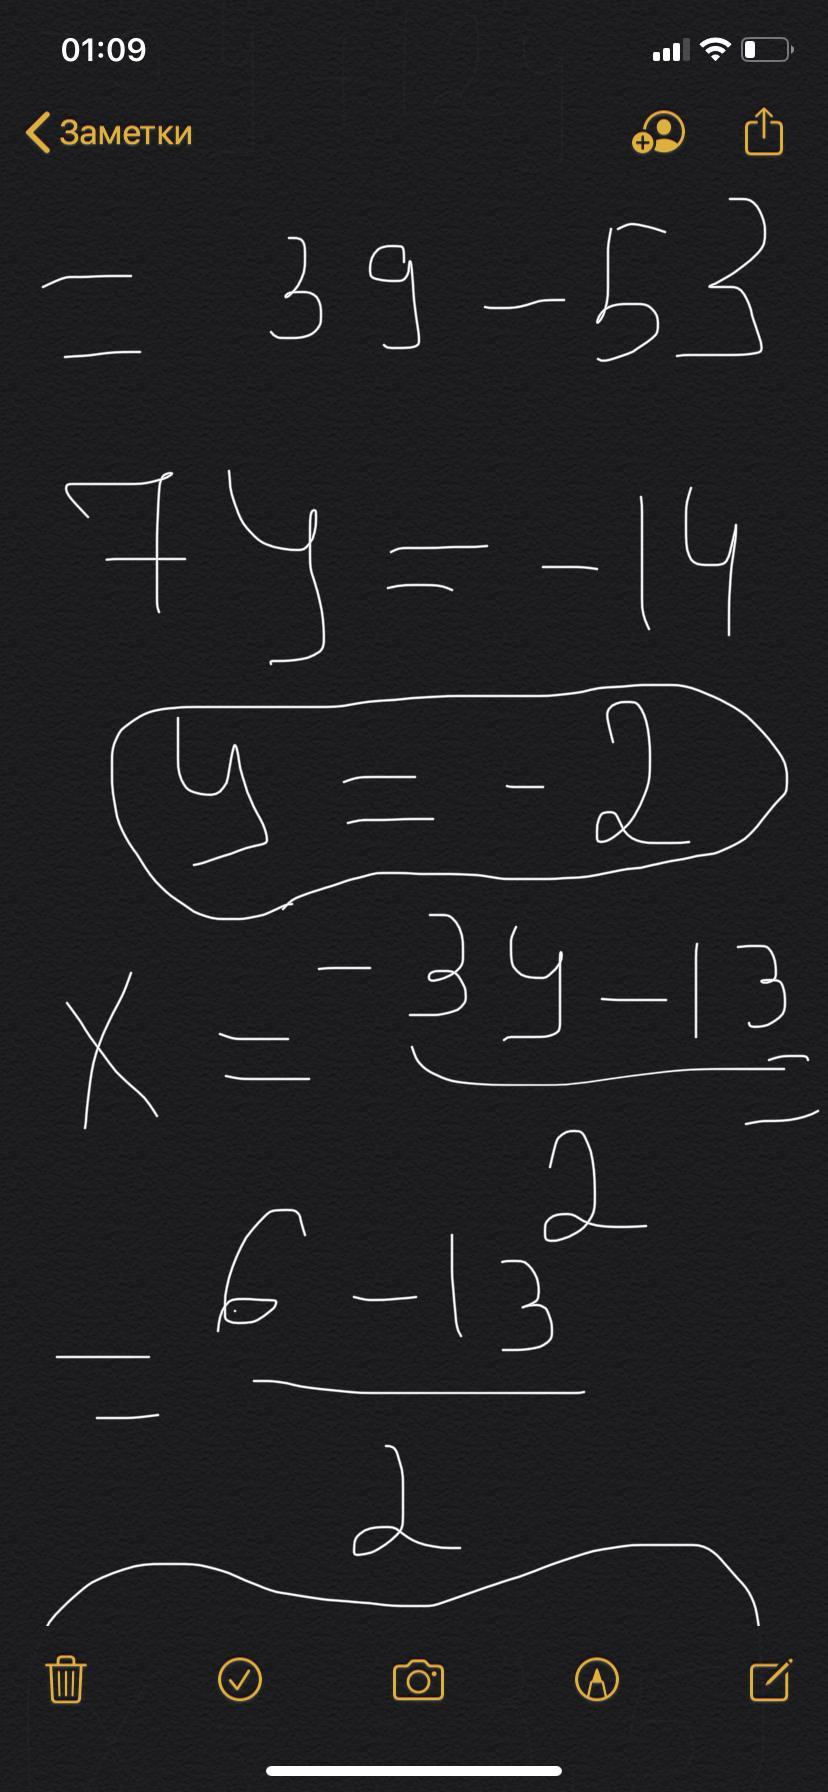 01:09
Заметки
= 39 - 53
7y = -14
y = -2
x = -3y - 13 =
2
= 6 - 13
2